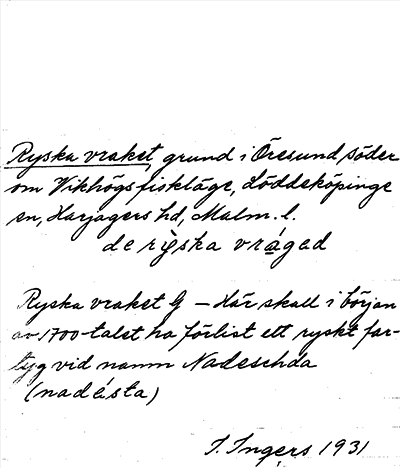 Ryska vraket, grund i Öresund söder
om Vikhögs fiskläge, Löddeköpinge
sn, Harjagers hd, Malm. l.
de ryska vrágad
Ryska vraket G – Här skall i början
av 1700-talet ha förlist ett ryskt far-
tyg vid namn Nadeschda
(nadésta)
I. Ingers 1931